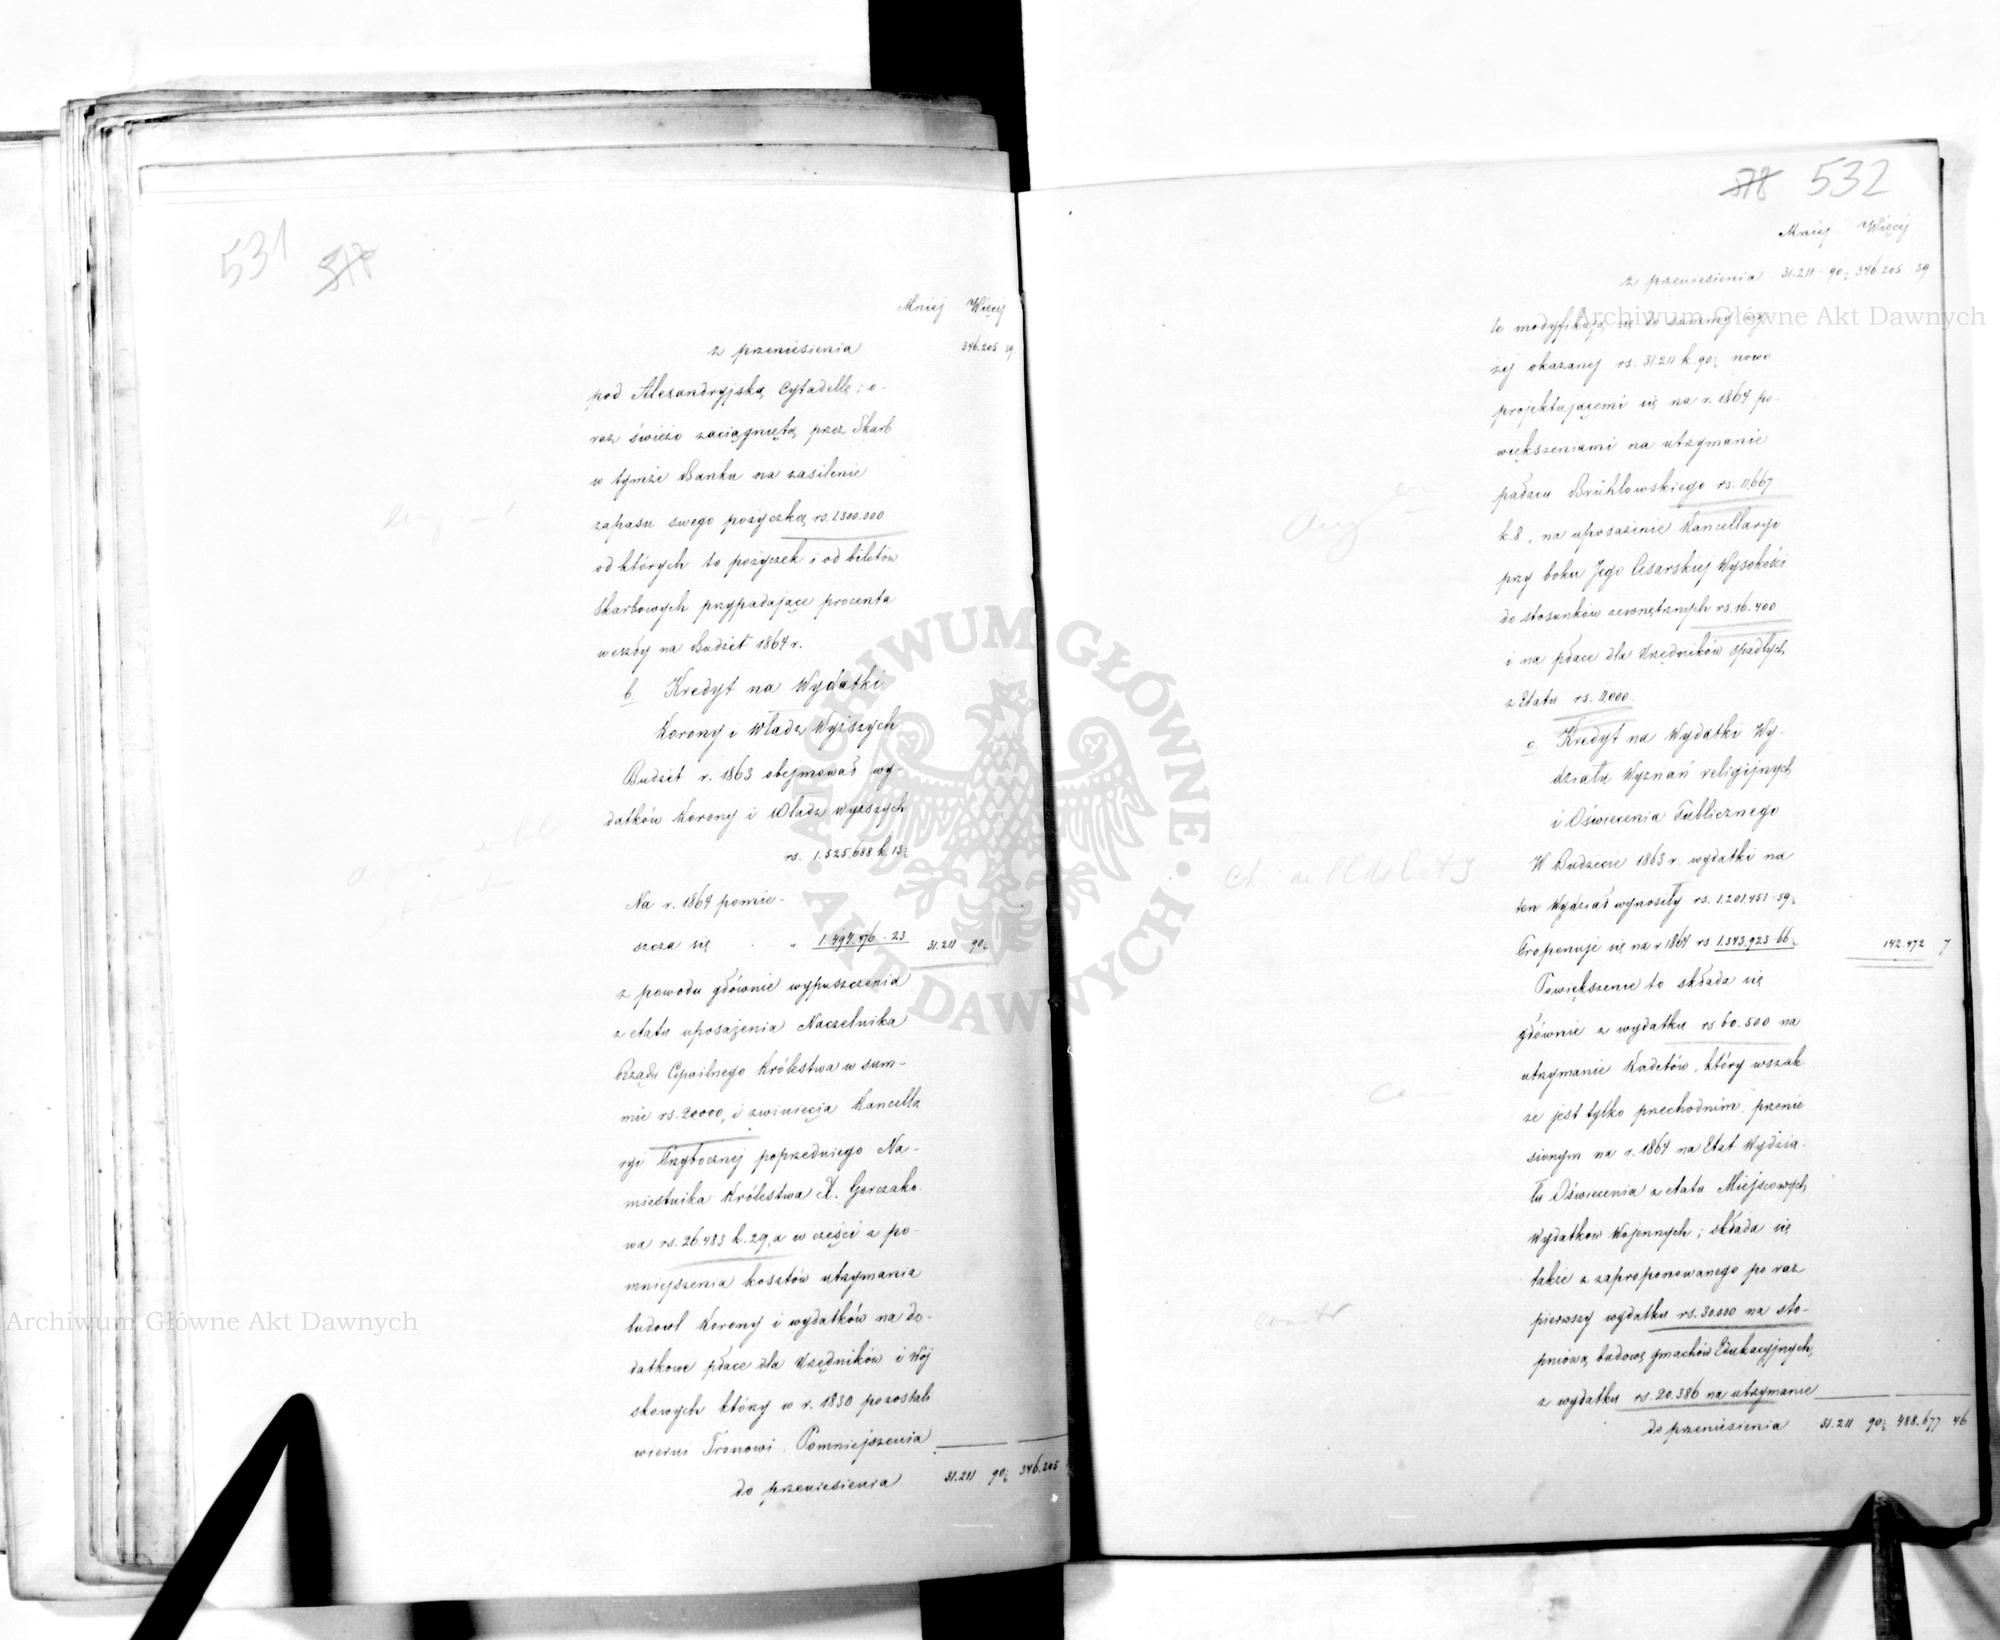 531 517
Mniej Więcej
z przeniesienia 346.205 39
pod Alexandryjską Cytadellę; o-
raz świeżo zaciągniętą przez Skarb
w tymże Banku na zasilenie
zapasu swego pożyczką rs. 1.300.000
od których to pożyczek i od biletów
Skarbowych przypadające procenta
weszły na Budżet 1864 r.
b. Kredyt na Wydatki
Korony i Władz Wyższych
Budżet r. 1863 obejmował wy-
datków Korony i Władz wyższych
rs. 1.525.688 k. 13½
Na r. 1864 pomie-
szcza się " 1.494.476 - 23 31.211 90½
z powodu głównie wypuszczenia
z etatu uposażenia Naczelnika
Rządu Cywilnego Królestwa w sum-
mie rs. 20000, i zwinięcia Kancella
ryi Przybocznej poprzedniego Na-
miestnika Królestwa X. Gorczako-
wa rs. 26.483 k. 29, a w części z po-
mniejszenia kosztów utrzymania
budowl Korony i wydatków na do-
datkowe płace dla Urzędników i Woj
skowych którzy w r. 1830 pozostali
wierni Tronowi. Pomniejszenia
do przeniesienia 31.211 90½ 346.205
518 532
Mniej Więcej
z przeniesienia 31.211 - 90½ 346.205 39
te modyfikują się do summy wy-
żej okazanej rs. 31.211 k. 90½ nowo
projektującemi się na r. 1864 po-
większeniami na utrzymanie
pałacu Brühlowskiego rs. 11,667
k. 8, na uposażenie Kancellaryi
przy boku Jego Cesarskiej Wysokości
do stosunków zewnętrznych rs. 16.400
i na płace dla Urzędników spadłych
z Etatu rs. 11,000.
c. Kredyt na Wydatki Wy-
działu Wyznań religijnych
i Oświecenia Publicznego
W Budżecie 1863 r. wydatki na
ten Wydział wynosiły rs. 1.201.451 - 59½
Proponuje się na r 1864 rs 1.343.923 - 66½ 142.472 7
Powiększenie to składa się
głównie z wydatku rs 60.500 na
utrzymanie Kadetów, który wszak-
że jest tylko przechodnim, przenie
sionym na r. 1864 na Etat Wydzia-
łu Oświecenia z etatu Miejscowych
Wydatków Wojennych; składa się
także z zaproponowanego po raz
pierwszy wydatku rs. 30.000 na sto-
pniową budowę gmachów Edukacyjnych,
z wydatku rs. 20.386 na utrzymanie
do przeniesienia 31.211 90½ 488.677 46
Archiwum Główne Akt Dawnych
Archiwum Główne Akt Dawnych
ARCHIWUM GŁÓWNE · AKT DAWNYCH ·